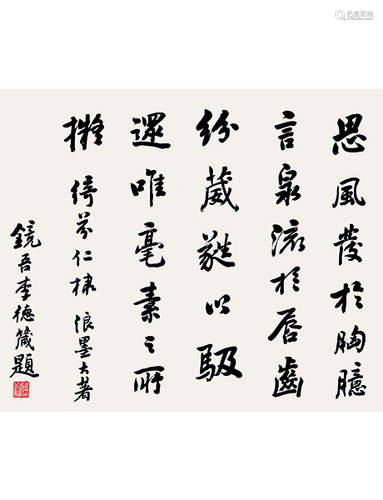 思風發於胸臆
言泉流於唇齒
紛葳蕤以馺
遝唯毫素之所
擬 綺芬仁棣浪墨大著
鏡吾李德箴題